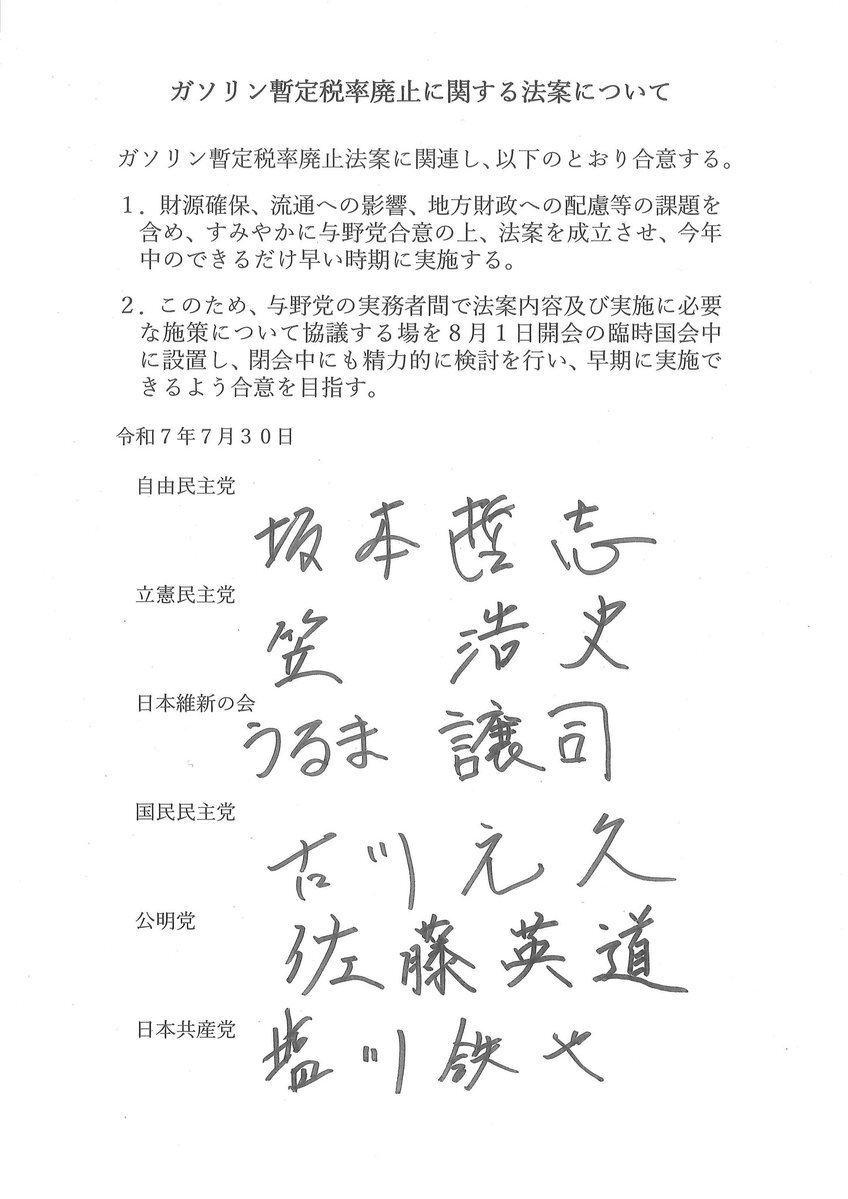 ガソリン暫定税率廃止に関する法案について
ガソリン暫定税率廃止法案に関連し、以下のとおり合意する。
１．財源確保、流通への影響、地方財政への配慮等の課題を
含め、すみやかに与野党合意の上、法案を成立させ、今年
中のできるだけ早い時期に実施する。
２．このため、与野党の実務者間で法案内容及び実施に必要
な施策について協議する場を８月１日開会の臨時国会中
に設置し、閉会中にも精力的に検討を行い、早期に実施で
きるよう合意を目指す。
令和７年７月３０日
自由民主党
坂本哲志
立憲民主党
笠　浩史
日本維新の会
うるま譲司
国民民主党
古川元久
公明党
佐藤英道
日本共産党
塩川鉄也